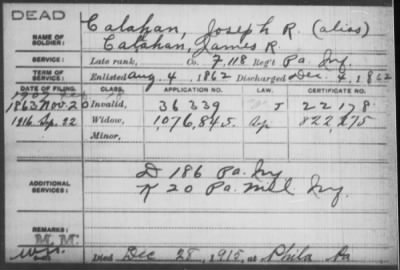 DEAD
NAME OF SOLDIER: Calahan, Joseph R. (alias)
Calahan, James R.
SERVICE: Late rank, Co. F, 118 Reg't Pa. Inf.
TERM OF SERVICE: Enlisted Aug. 4, 1862 Discharged Dec. 4, 1862
DATE OF FILING. CLASS. APPLICATION NO. LAW. CERTIFICATE NO.
1863 Nov. 20 Invalid, 36339 22178.
1916 Ap. 22 Widow, 1,076,845 822,275
Minor,
ADDITIONAL SERVICES: D 186 Pa. Inf
K 20 Pa. Mil Inf.
REMARKS: M. M.
Died Dec 28, 1915, at Phila Pa